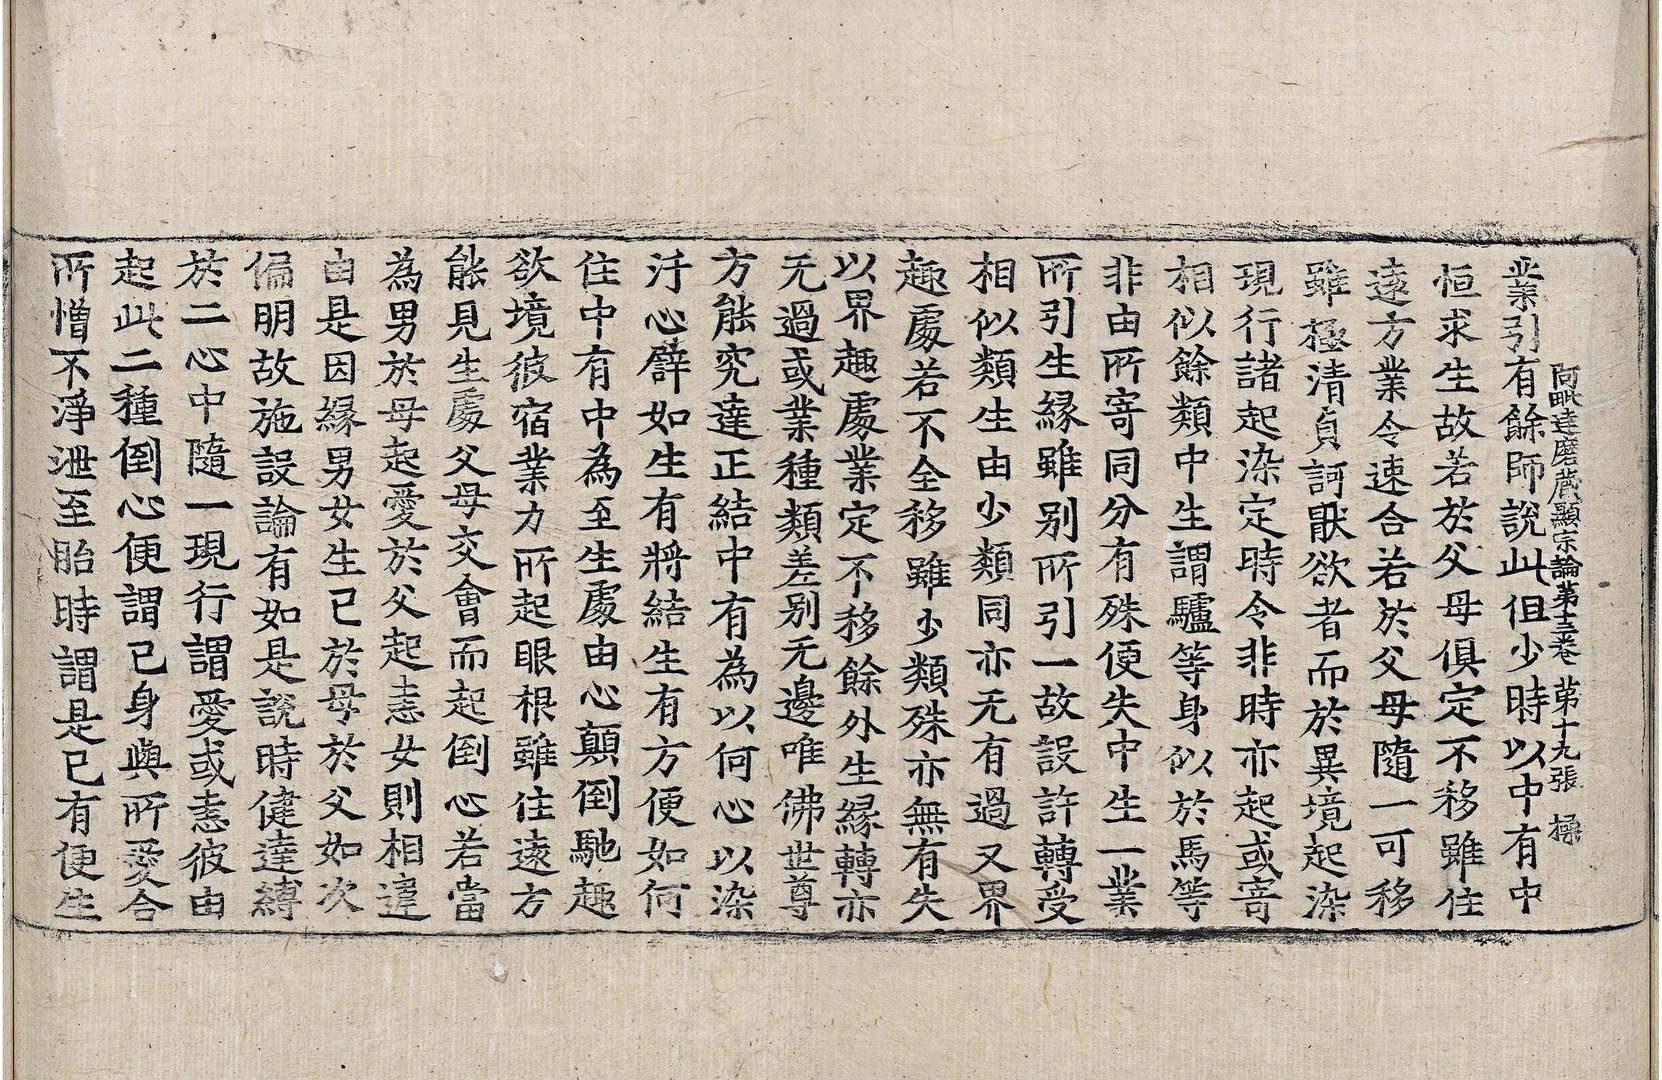 阿毗達磨藏顯宗論第十三卷 第十九張 操
業引有餘師說此但少時以中有中
恒求生故若於父母俱定不移雖住
遠方業令速合若於父母隨一可移
雖極淸貞訶猒欲者而於異境起染
現行諸起染定時令非時亦起或寄
相似餘類中生謂驢等身似於馬等
非由所寄同分有殊便失中生一業
所引生緣雖別所引一故設許轉受
相似類生由少類同亦无有過又界
趣處若不全移雖少類殊亦無有失
以界趣處業定不移餘外生緣轉亦
无過或業種類差別无邊唯佛世尊
方能究達正結中有為以何心以染
汙心譬如生有將結生有方便如何
住中有中為至生處由心顚倒馳趣
欲境彼宿業力所起眼根雖住遠方
能見生處父母交會而起倒心若當
為男於母起愛於父起恚女則相違
由是因緣男女生已於母於父如次
偏朋故施設論有如是說時健達縛
於二心中隨一現行謂愛或恚彼由
起此二種倒心便謂己身與所愛合
所憎不淨泄至胎時謂是已有便生